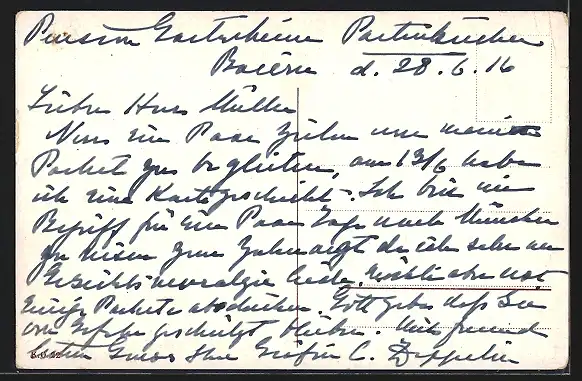 Pension Gartenheim Partenkirchen
Baiern d. 28.6.16
Lieber Herr Müller
Nur ein Paar Zeilen um mein
Packet zu begleiten, am 13/6 habe
ich eine Karte geschickt –. Ich bin im
Begriff für ein Paar Tage nach München
zu reisen zum Zahnarzt da ich sehr an
Gesichtsneuralgie leide, möchte aber noch
einige Packete abschicken. Gott gebe daß Sie
vor Gefahr geschützt bleiben. Mit freund
lichem Gruss Ihre Gräfin C. Zeppelin